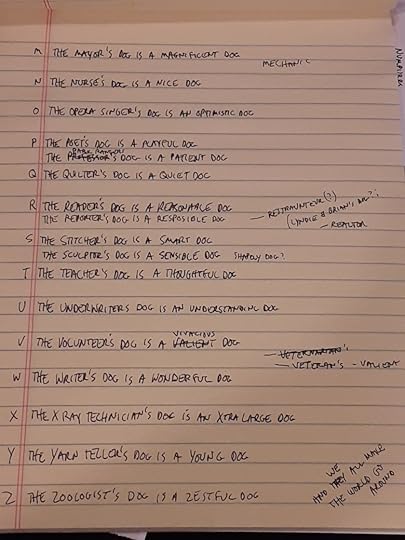 M THE MAYOR'S DOG IS A MAGNIFICENT DOG
MECHANIC
N THE NURSE'S DOG IS A NICE DOG
O THE OPERA SINGER'S DOG IS AN OPTIMISTIC DOG
P THE POET'S DOG IS A PLAYFUL DOG
PARK RANGER'S
THE PROFESSOR'S DOG IS A PATIENT DOG
Q THE QUILTER'S DOG IS A QUIET DOG
R THE READER'S DOG IS A REASONABLE DOG
THE REPORTER'S DOG IS A RESPOSIBLE DOG
— RESTRAUNTEUR (?)
(LYNDIE & BRIAN'S DOG?)
— REALTOR
S THE STITCHER'S DOG IS A SMART DOG
THE SCULPTOR'S DOG IS A SENSIBLE DOG SHAPELY DOG?
T THE TEACHER'S DOG IS A THOUGHTFUL DOG
U THE UNDERWRITERS DOG IS AN UNDERSTANDING DOG
VIVACIOUS
V THE VOLUNTEER'S DOG IS A VALIENT DOG
— VETERNARIAN'S
— VETERAN'S - VALIENT
W THE WRITER'S DOG IS A WONDERFUL DOG
X THE X RAY TECHNICIAN'S DOG IS AN XTRA LARGE DOG
Y THE YARN TELLER'S DOG IS A YOUNG DOG
Z THE ZOOLOGIST'S DOG IS A ZESTFUL DOG
WE
AND THEY ALL MAKE
THE WORLD GO
AROUND